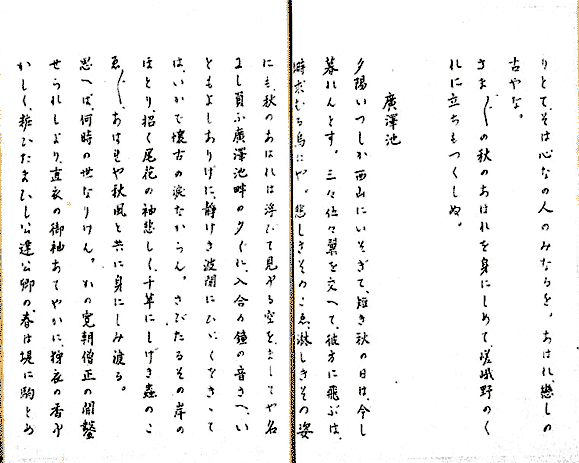 りとて、そは心なの人のみなるを。あはれ、戀しの
古やな。
さま〲の秋のあはれを身にしめて、嵯峨野のく
れに立ちもつくしぬ。
廣澤池
夕陽いつしか西山にいそぎて、短き秋の日は、今し
暮れんとす。三々伍々翼を交へて、彼方に飛ぶは、
塒求むる鳥にや。悲しきそのこゑ、淋しきその姿
にも、秋のあはれは浮びて見ゆる空を、ましてや名
にし負ふ廣澤池畔の夕ぐれ、入合の鐘の音さへ、い
ともよしありげに、靜けき波間にひゞくをきゝて
は、いかで懷古の涙なからん。さびたるその岸の
ほとり、招く尾花の袖悲しく、千草にしげき蟲のこ
ゑ〲、あはれや秋風と共に身にしみ渡る。
思へば、何時の世なりけん。かの寛朝僧正の開鑿
せられしより、直衣の御袖あてやかに、狩衣の香ゆ
かしく、粧ひたまひし公達公卿の、春は堤に駒とめ